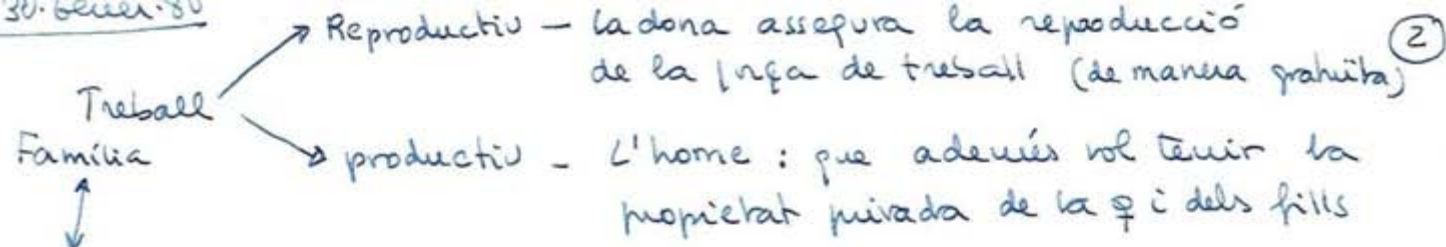 30. Gener. 80
Reproductiu – La dona assegura la reproducció
②
de la força de treball (de manera gratuïta)
Treball
Família
productiu – L'home : que además vol tenir la
propietat privada de la ♀ i dels fills